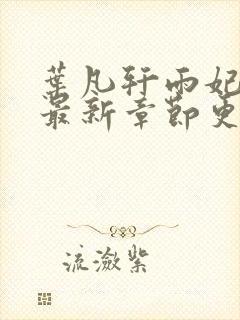 葉凡轩雨妃
最新章節更
流潋紫